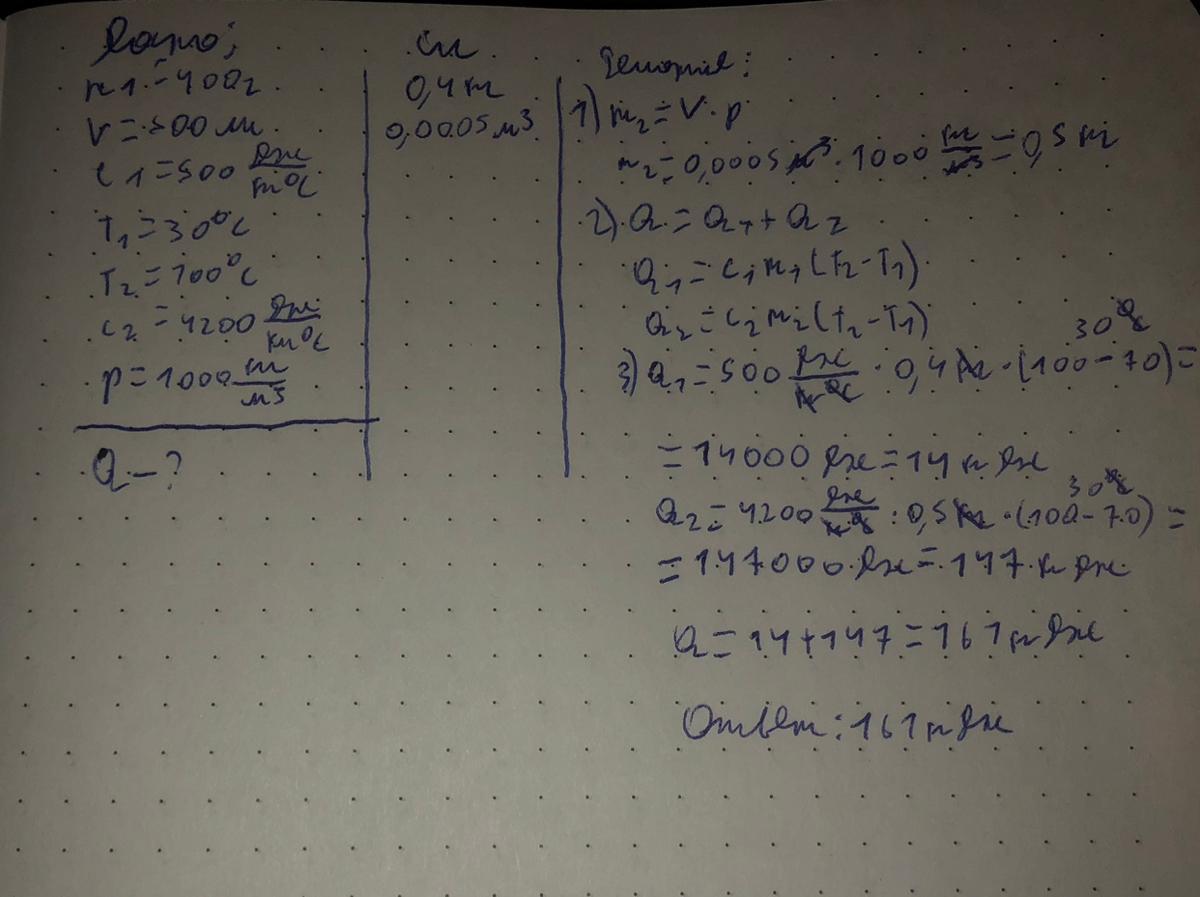 Дано:
m1 = 400г
V = 500 мл
c1 = 500 Дж/кг°C
T1 = 30°C
T2 = 100°C
c2 = 4200 Дж/кг°C
p = 1000 кг/м³
Q - ?
Си
0,4 кг
0,0005 м³
Решение:
1) m2 = V · p
m2 = 0,0005 м³ · 1000 кг/м³ = 0,5 кг
2) Q = Q1 + Q2
Q1 = c1 m1 (T2 - T1)
Q2 = c2 m2 (T2 - T1)
30°C
3) Q1 = 500 Дж/кг°C · 0,4 кг · (100 - 70) =
= 14000 Дж = 14 кДж
30°C
Q2 = 4200 Дж/кг°C · 0,5 кг · (100 - 70) =
= 147000 Дж = 147 кДж
Q = 14 + 147 = 161 кДж
Ответ: 161 кДж